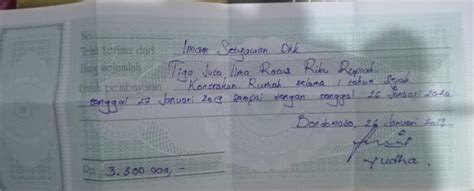 No.
Telah terima dari Imam Setyawan Dkk
Uang sejumlah Tiga Juta Lima Ratus Ribu Rupiah
Untuk pembayaran Kontrakan Rumah selama 1 tahun Sejak
tanggal 27 Januari 2019 sampai dengan tanggal 26 Januari 2020
Bondowoso, 26 Januari 2019
Yudha.
Rp. 3.500.000,-